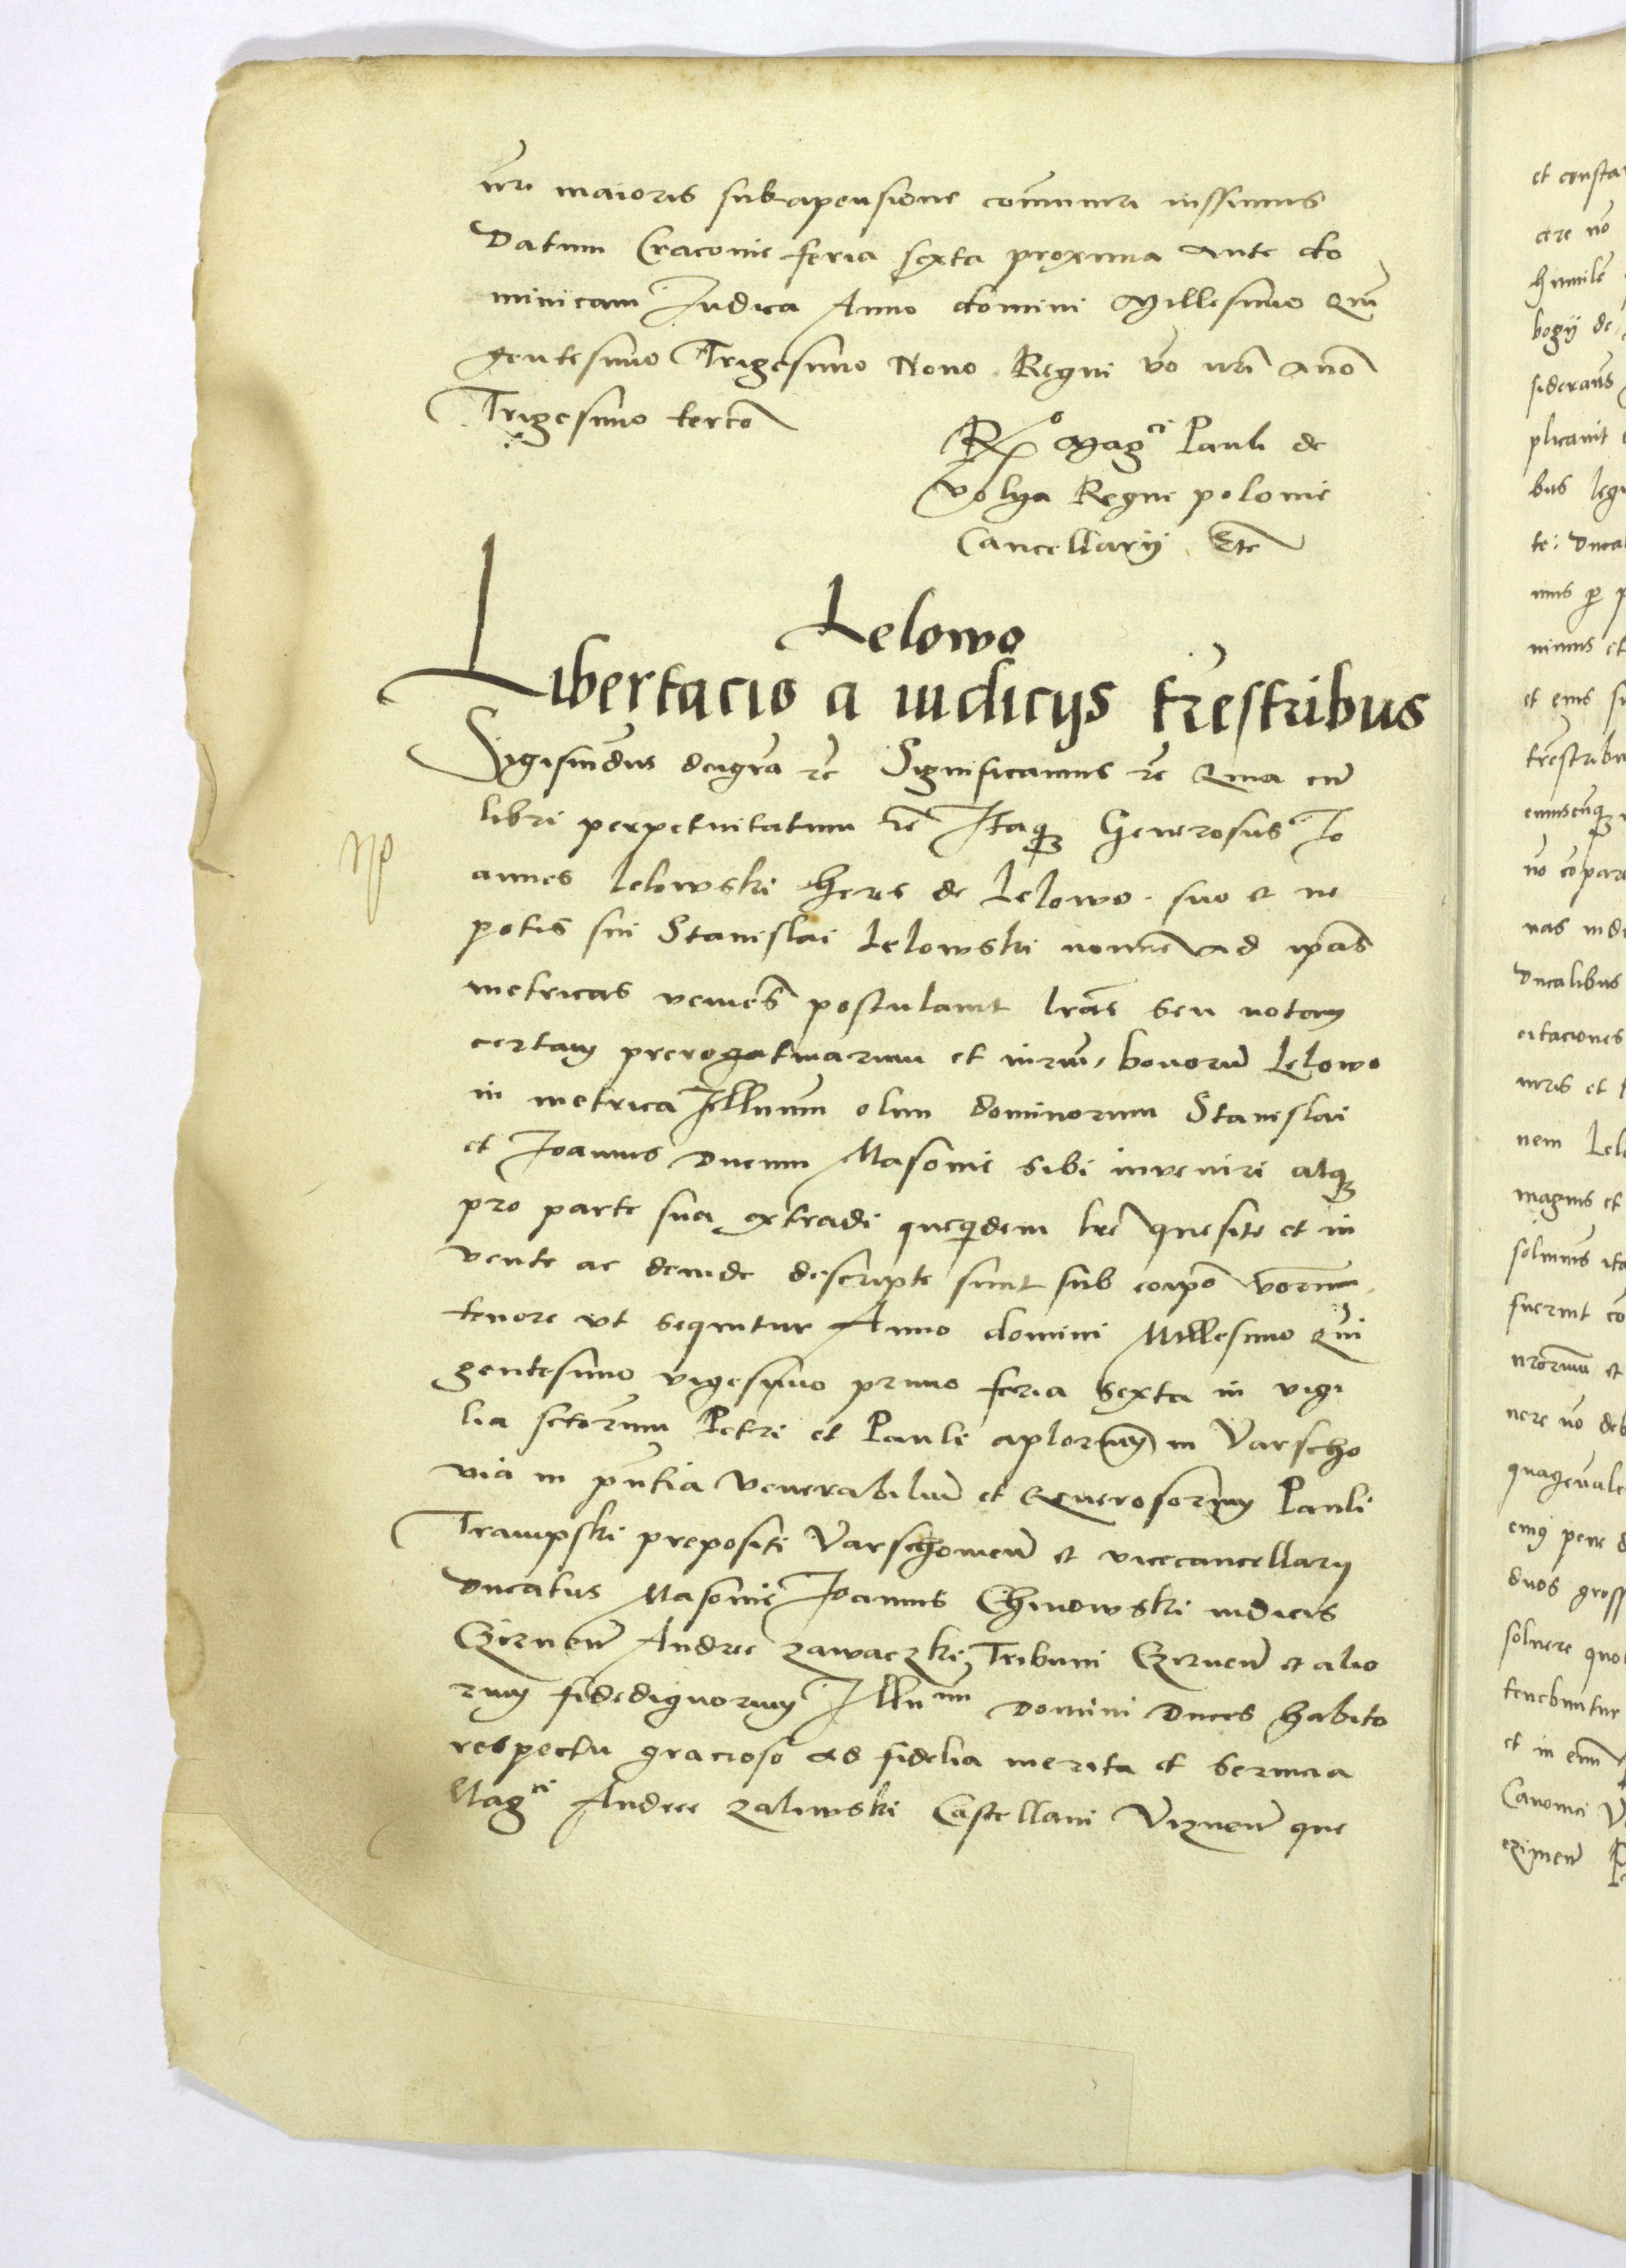 nri maioris subapensione comuniri iussimus
Datum Cracovie feria sexta proxima ante do
minicam Iudica Anno domini Millesimo Quin
gentesimo Trigesimo Nono Regni vo nri Ano
Trigesimo tercio
Ro Magci Pauli de
Volya Regni polonie
Cancellarij Etc
Lelowo
Libertacio a iudicijs trestribus
Sigismdus dei gra rc Significamus rc Quia cu
libri perpetuitatum rc Itaq Generosus Io
annes Lelowski heres de Lelowo suo et ne
potis sui Stanislai Lelowski nomine ad ipas
metricas veniens postulavit lras seu notam
certam prerogativarum et iurium bonorum Lelowo
in metrica Illrium olim dominorum Stanislai
et Ioannis Ducum Masovie sibi inveniri atq
pro parte sua extradi quequidem lre quesite et in
vente ac deinde descripte sunt sub eorum
tenore ut sequitur Anno domini Millesimo Quin
gentesimo vigesimo primo feria sexta in vigi
lia sctorum Petri et Pauli aplorum in Varscho
via in pntia Venerabilium et Generosorum Pauli
Trampski prepositi Varschovien et vicecancellarij
Ducatus Masovie Ioannis Chinowski iudicis
Czirnen Andree Zawaczki Tribuni Czirnen et alio
rum fidedignorum Illrimi Domini Duces habito
respectu gracioso ad fidelia merita et servicia
Magci Andree Zaliwski Castellani Viznen que
et consta
cere no
humile
bogij de
siderans
plicavit
bus legi
te: Duca
mus p p
nimus et
et eius su
trestribu
eiuscunq
no copare
nas inde
Ducalibus
citaciones
iuris et
nem Lelo
magnis et
solvimus ita
fuerint co
nrorum et
nere vo deb
quagevale
eius pene d
duos gross
solvere quo
tenebuntur
et in eum
Canonici V
czimen P